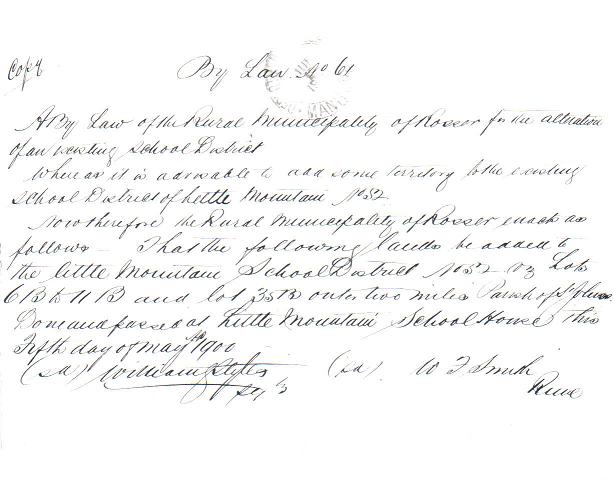 Copy
By Law No 61
A By Law of the Rural Municipality of Rosser for the alteration
of an existing School District
Whereas it is advisable to add some territory to the existing
School District of Little Mountain No 52
Now therefore the Rural Municipality of Rosser enact as
follows - That the following lands be added to
the little Mountain School District No 52 viz Lots
6B to 11B and lot 35B outer two miles Parish of St Johns
Done and passed at Little Mountain School House this
Fifth day of May 1900
(sd) William (sd) W F Smith
Reeve